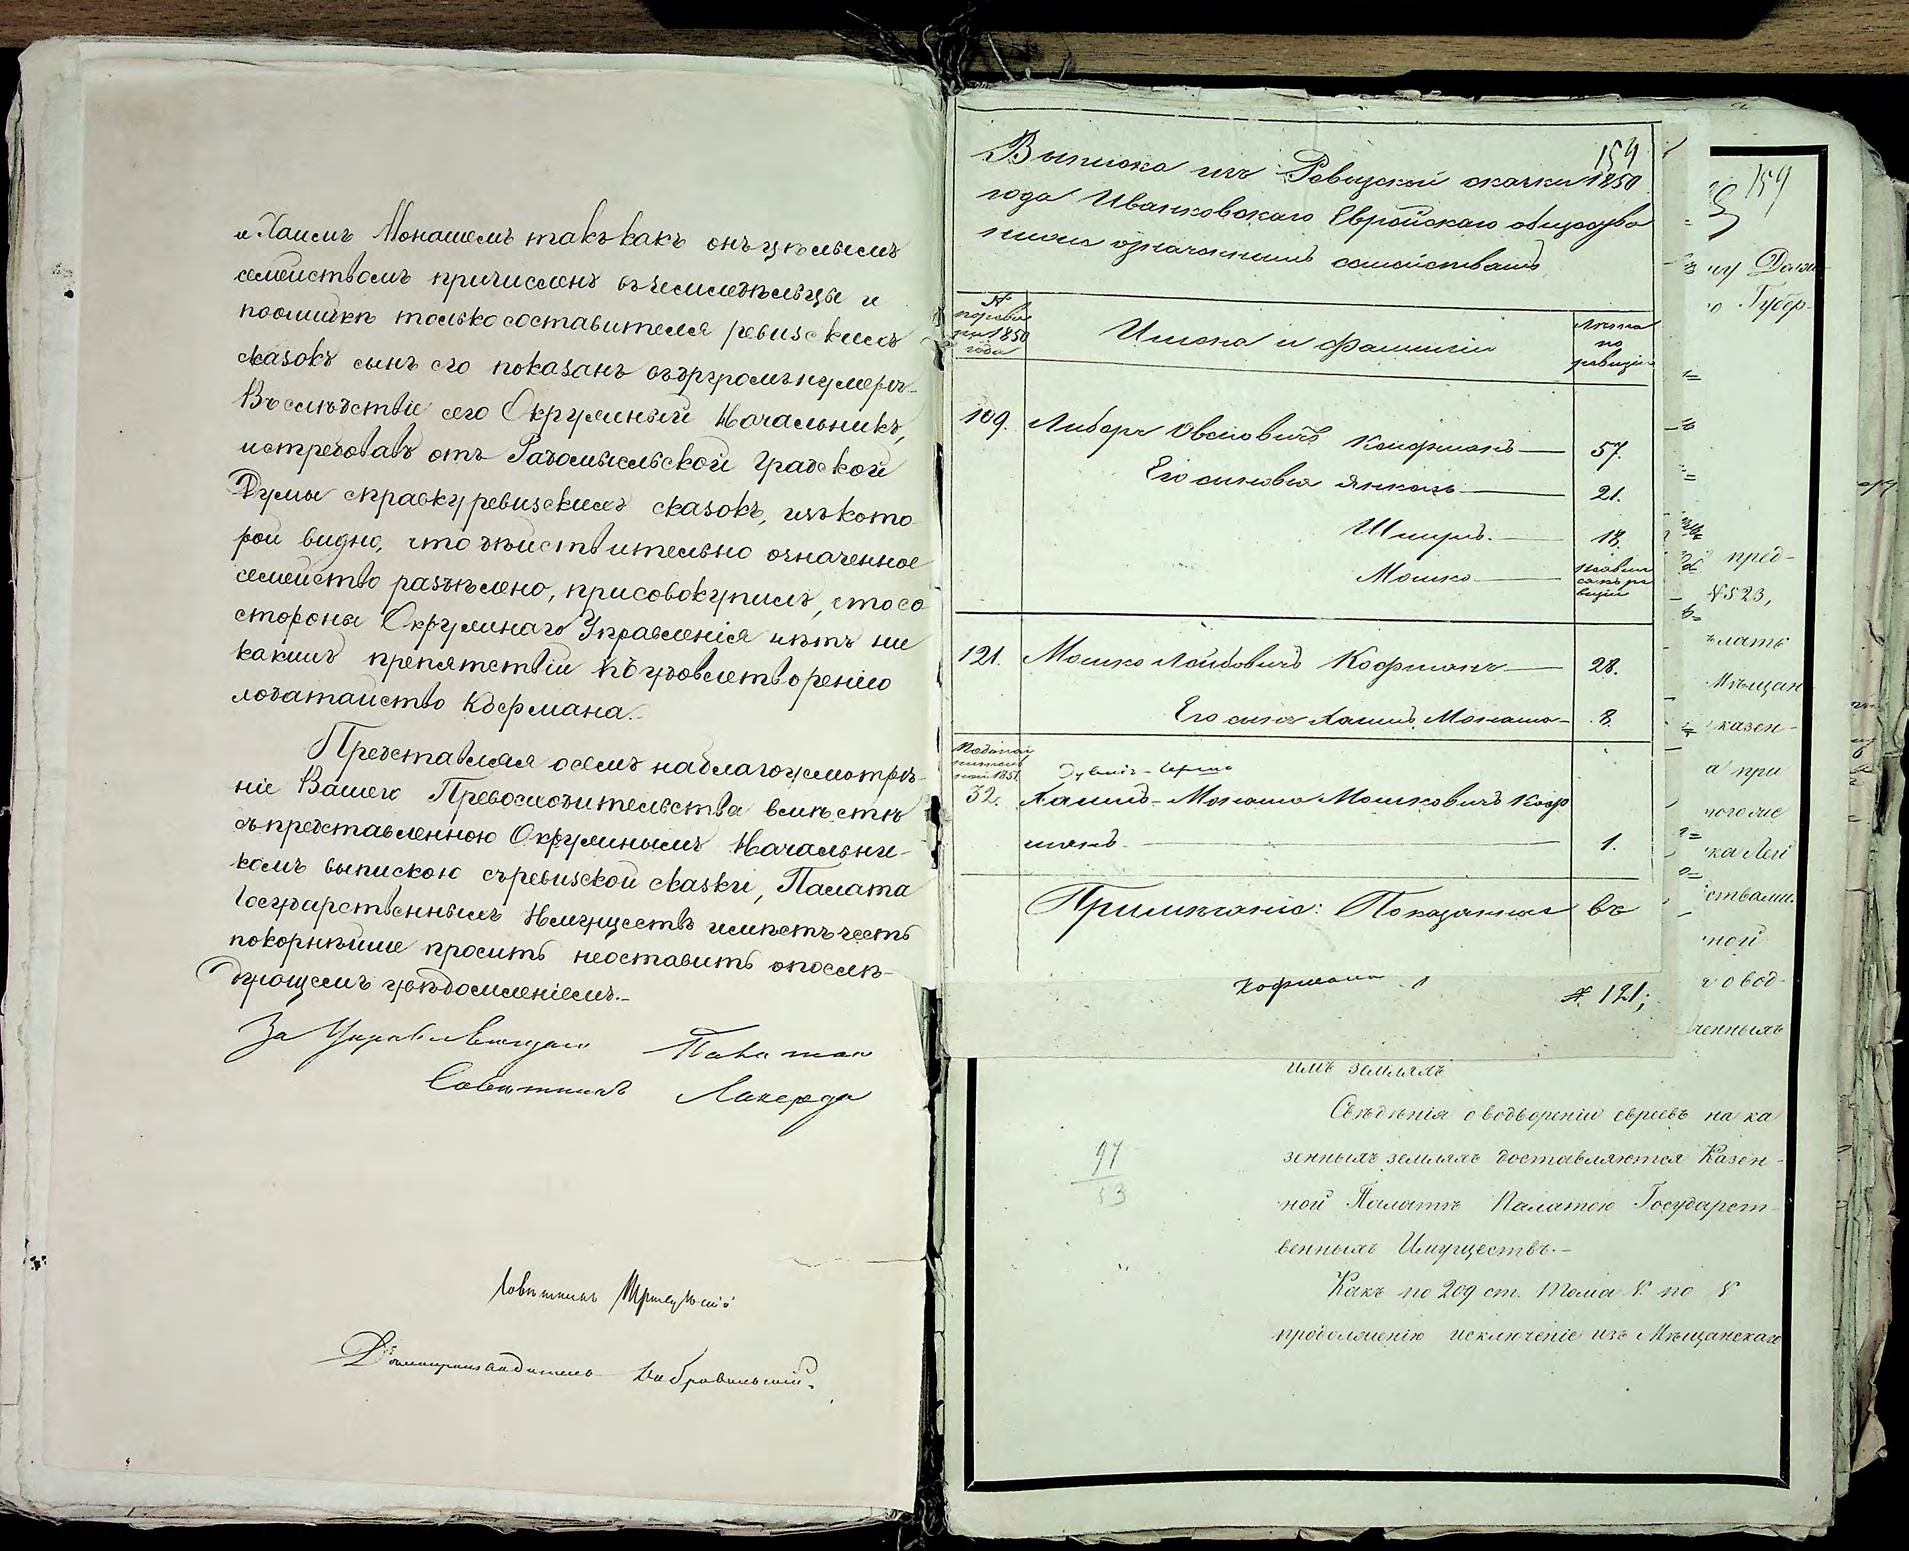 и Хаимъ Монашемъ такъ какъ онъ цѣлымъ
семействомъ причисленъ въ земледѣльцы и
поошибкѣ только составителя ревизскихъ
сказокъ сынъ его показанъ въ другомъ нумерѣ.
Въ слѣдствіе сего Окружный Начальникъ,
истребовавъ отъ Радомысльской Градской
Думы справку ревизскихъ сказокъ, изъ кото
рой видно, что дѣйствительно означенное
семейство раздѣлено, присовокупилъ, что со
стороны Окружнаго Управленія нѣтъ ни
какихъ препятствій къ удовлетворенію
ходатайство Кофмана.
Представляя о семъ на благоусмотрѣ-
ніе Вашего Превосходительства вмѣстѣ
съ представленною Окружнымъ Начальни-
комъ выпискою съ ревизской сказки, Палата
Государственныхъ Имуществъ имѣетъ честь
покорнѣйше просить неоставить о послѣ-
дующемъ увѣдомленіемъ.
За Управляющаго Палатою
Совѣтникъ
Совѣтникъ
Дѣлопроизводитель
159
Выписка изъ Ревизской сказки 1850
года Иванковскаго Еврейскаго общества
означеннымъ семействамъ
№ по ревизіи 1850 года
Имена и фамиліи
Лѣта по ревизіи
109. Либеръ Овсіовичъ Кофманъ — 57.
Его сыновья Янкель — 21.
Шмулъ — 18.
Мошко —
121. Мошко Лейбовичъ Кофманъ — 28.
Его сынъ Хаимъ Монашъ — 8.
По дополнительной 1851
32. Хаимъ-Монашъ Мошковичъ Коф
манъ — 1.
Примѣчаніе: Показанная въ
Кофмана
№ 121;
159
Губер-
пред-
№ 523,
Мѣщан
казен-
а при
имъ землямъ
Свѣдѣнія о водвореніи евреевъ на ка
зенныхъ земляхъ доставляются Казен-
ной Палатѣ Палатою Государст-
венныхъ Имуществъ.-
97
53
Какъ по 209 ст. Тома V. по V
продолженію исключеніе изъ Мѣщанскаго